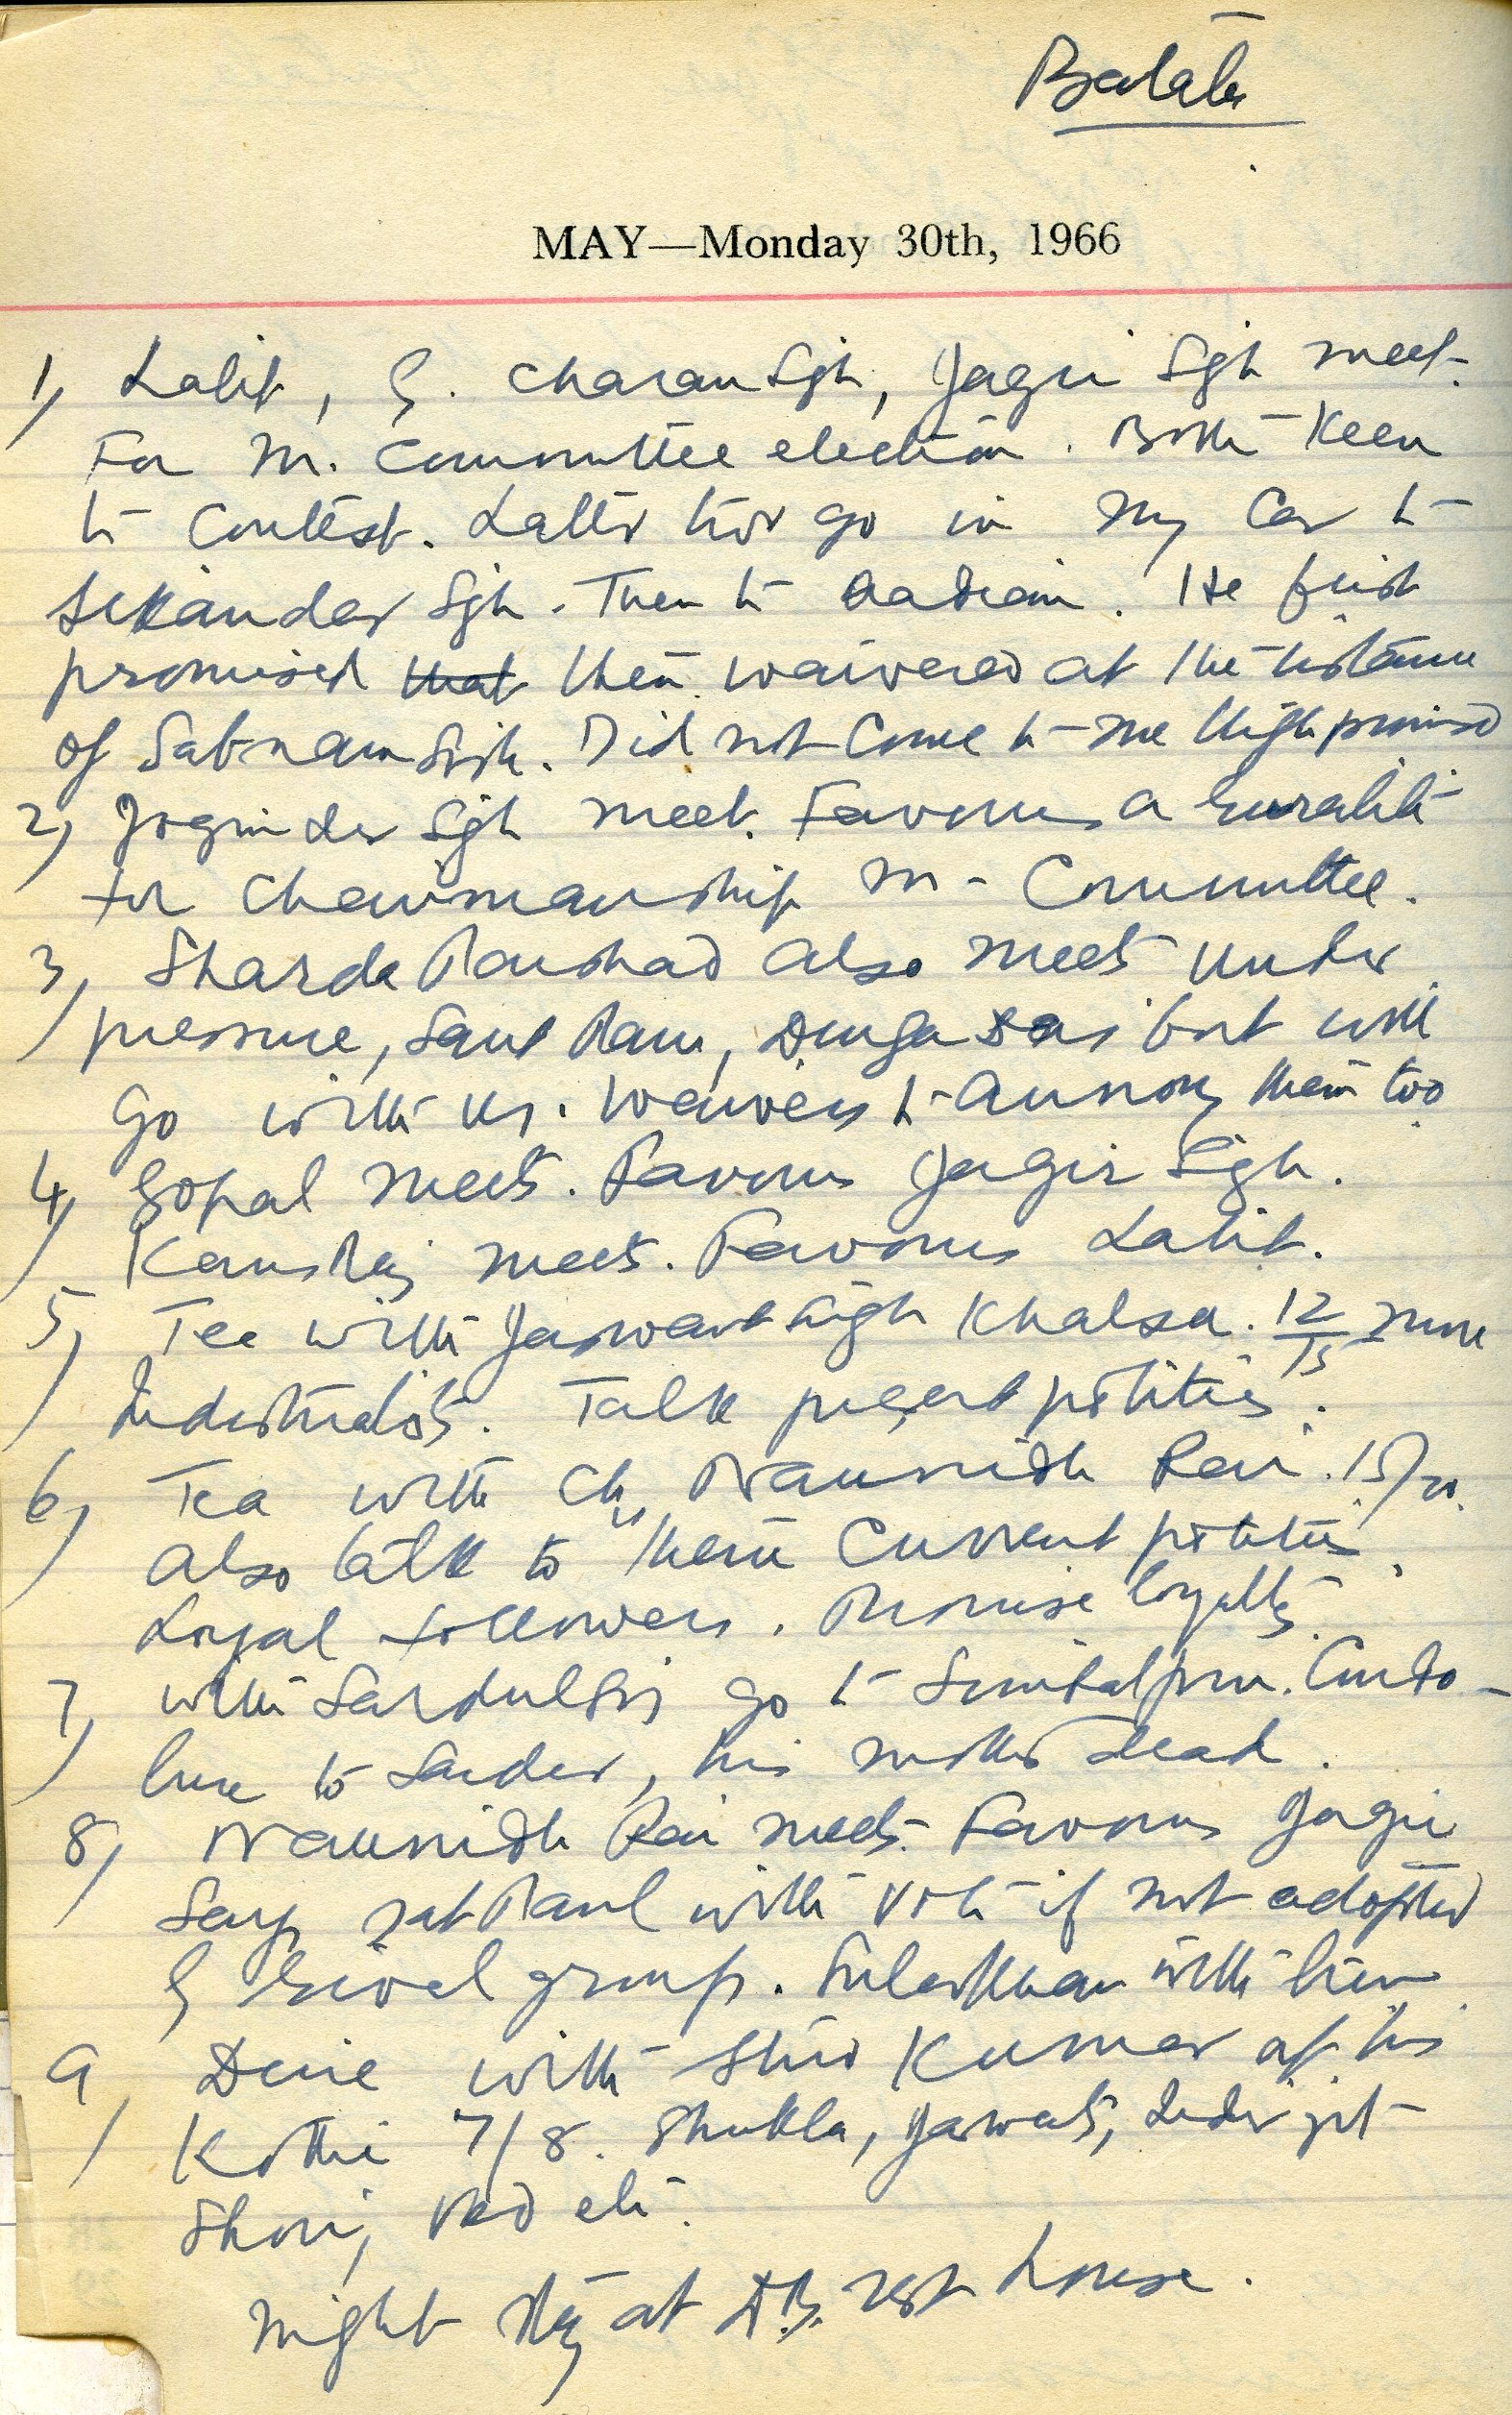 Batala
MAY—Monday 30th, 1966
1) Lalit, G. Charan Sgh, Jagir Sgh meet
For M. Committee election. Both Keen
to Contest. Latter two go in my Car to
Sikander Sgh. Then to. He first
promised that then waivered at the instance
of Satnam Sgh. Did not Come to me though promised
2) Joginder Sgh meet. Favours a
for Chairmanship M. Committee.
3) Sharda Parshad also meets under
pressure, Sant Ram, Durga Das but will
go with us. Waivers to annoy them too
4) Gopal meets. Favours Jagir Sgh.
Kansraj meets. Favours Lalit.
5) Tea with Jaswant Singh Khalsa. 12/15 more
Industrialists. Talk present politics.
6) Tea with Ch. Naunidh Rai. 15/20.
also talk to them Current politics.
Loyal followers. Promise loyalty.
7) with go to. Condo-
lence to Sardar, his mother dead.
8) Naunidh Rai meets. Favours Jagir
Say Sat Paul with vote if not adopted
by rival group. with him
9) Dine with Shiv Kumar at his
Kothi 7/8. Shukla, Jaswant, Inderjit
Shori, Ved etc.
Night stay at D.B. rest house.